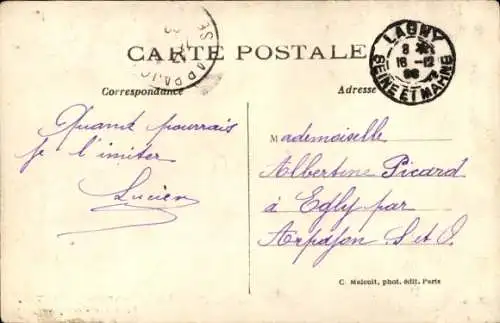 CARTE POSTALE
Correspondance
Adresse
LAGNY
8
16-12
SEINE ET MARNE
Quand pourrais
je l'imiter
Lucien
Mademoiselle
Albertine Picard
à Egly par
Arpajon S. et O.
C. Malcuit, phot. édit. Paris